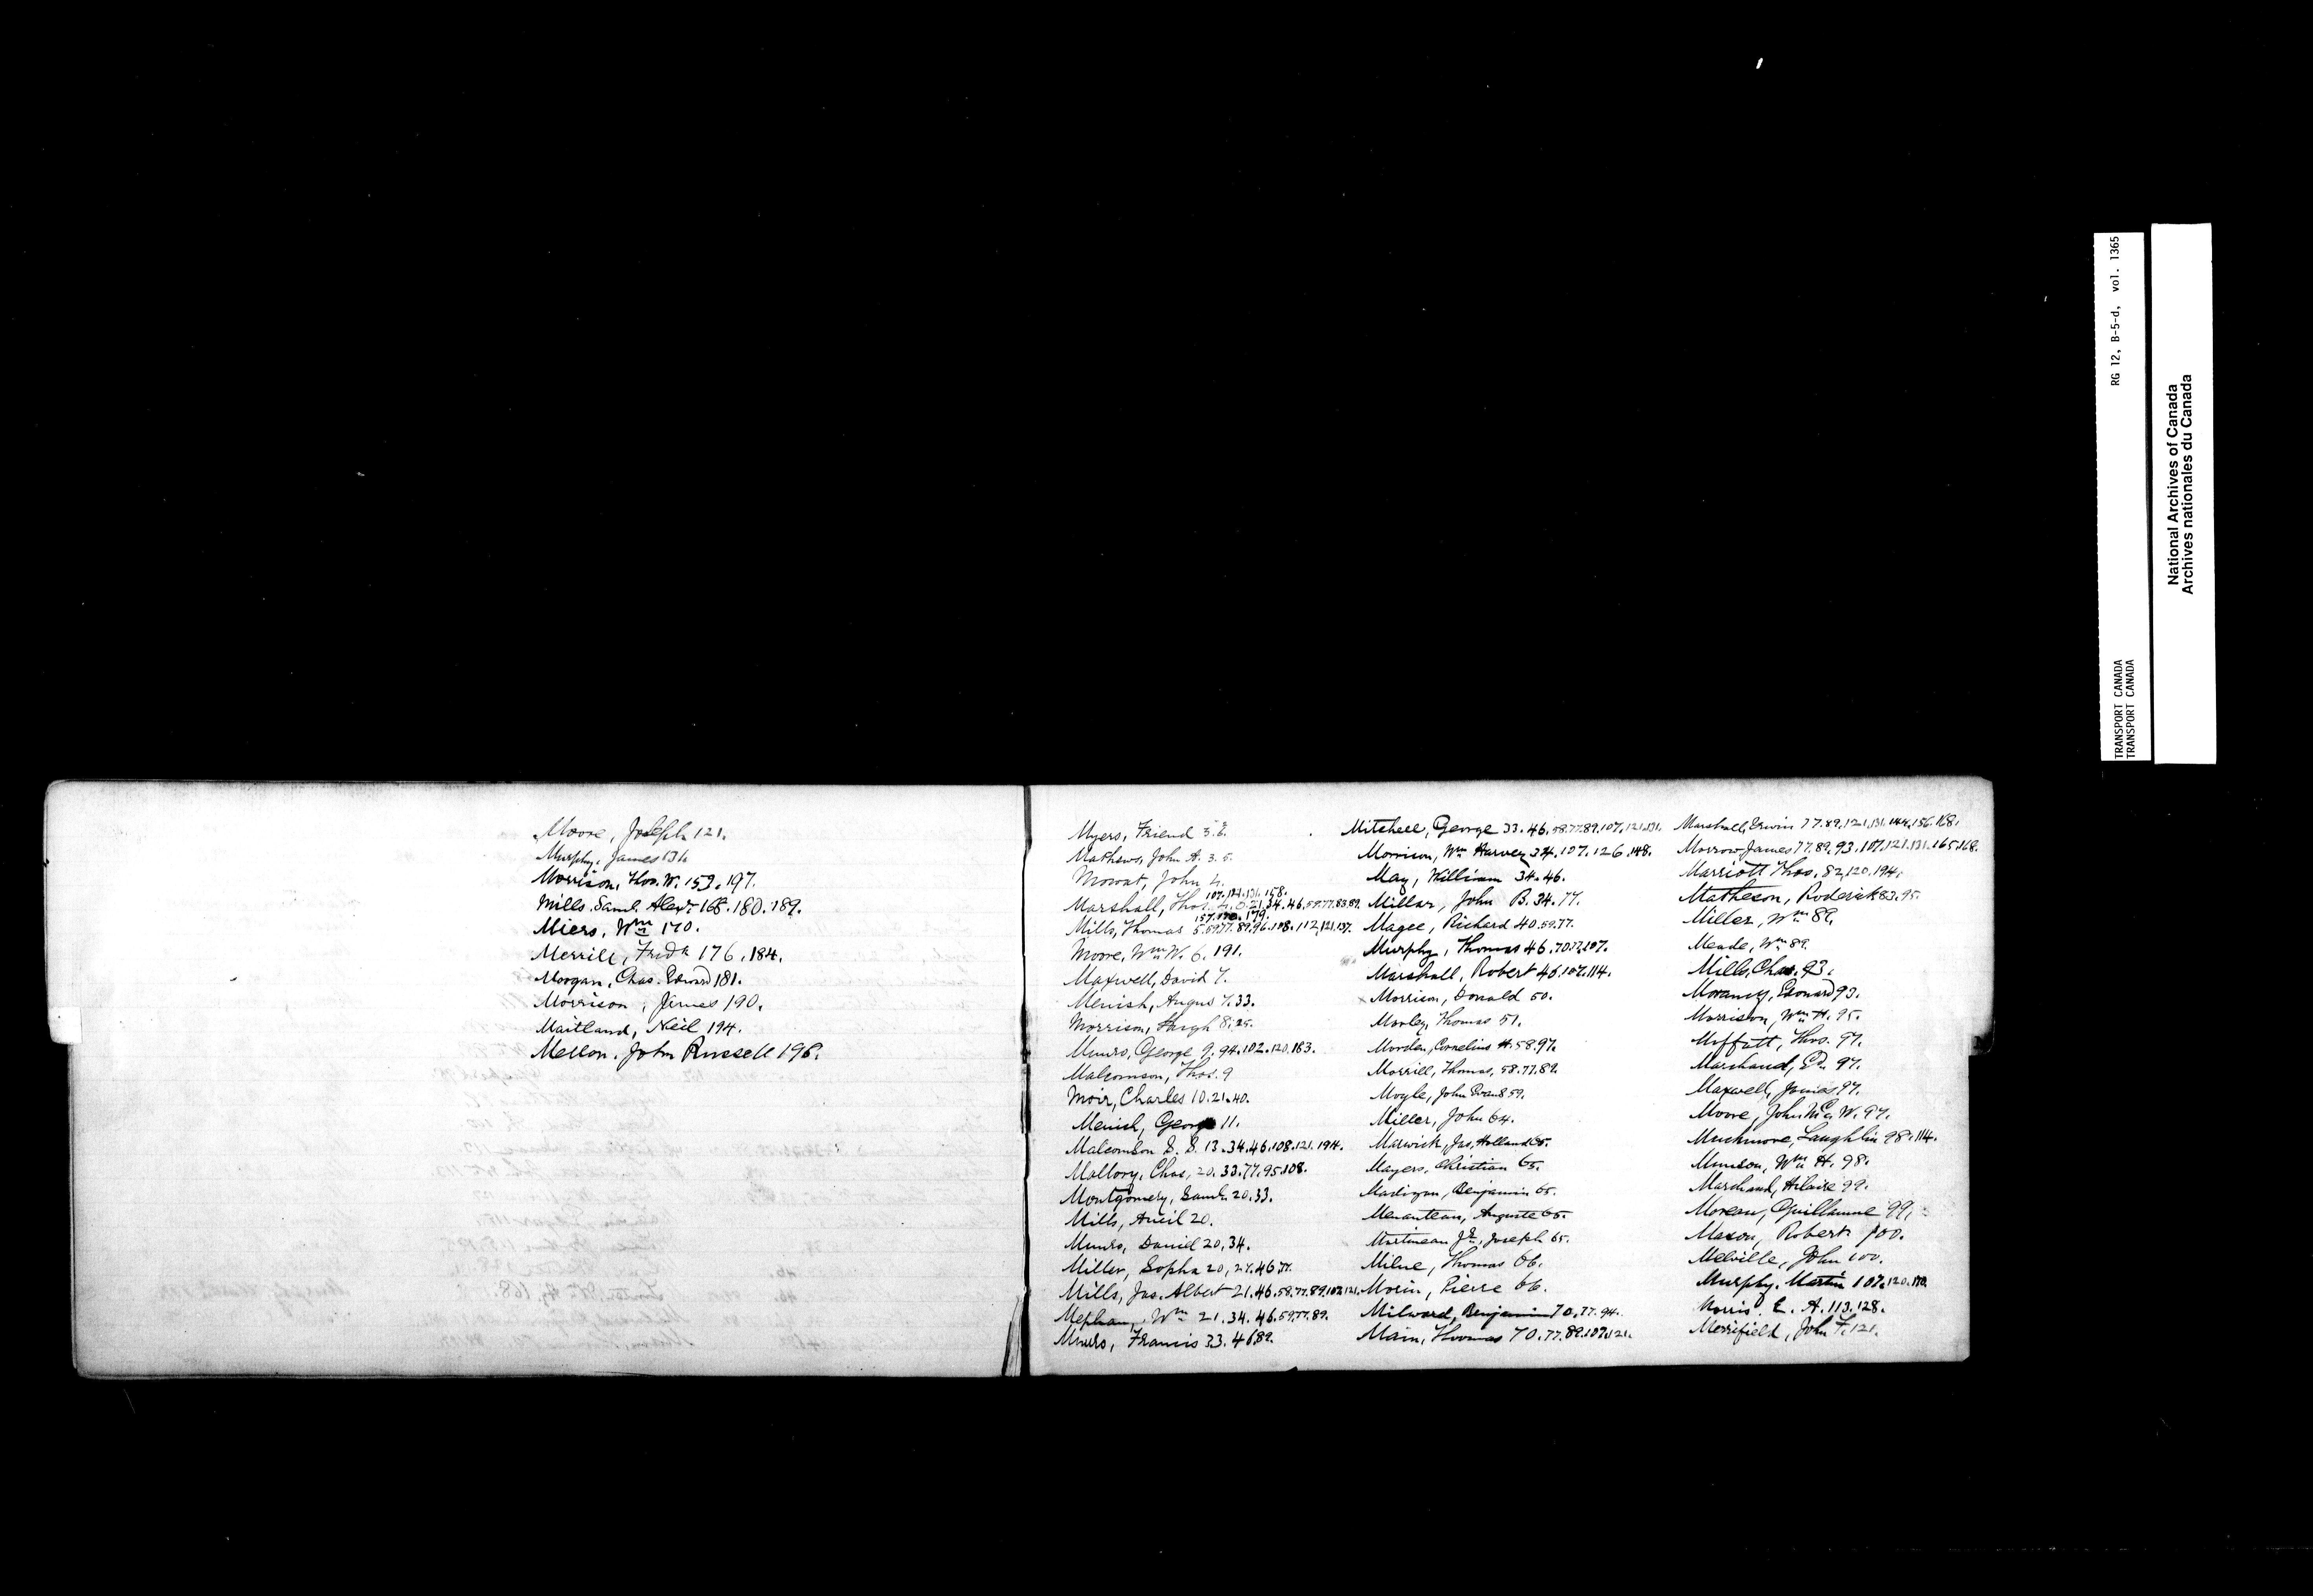 Moore, Joseph 121.
Murphy, James 131.
Morrison, Hos. W. 153. 197.
Mills. Saml. Alexr 168. 180. 189.
Miers, Wm 170.
Merrill, Fredk 176. 184.
Morgan, Chas. Edward 181.
Morrison, James 190.
Maitland, Neil 194.
Mellon. John Russell 196.
Myers, Friend 3.
Mathews, John A. 3. 5.
Mowat, John 4.
107. 121. 131. 158.
Marshall, Thos. 21. 34. 46. 59. 77. 83. 89.
157. 170. 179.
Mills, Thomas 5. 59. 77. 89. 96. 108. 112. 121. 137.
Moore, Wm W. 6. 191.
Maxwell, David 7.
Menish, Angus 7. 33.
Morrison, Hugh 8. 25.
Munro, George 9. 94. 102. 120. 163.
Malcomson, Thos. 9
Moir, Charles 10. 21. 40.
Menish, George 11.
Malcomson S. S. 13. 34. 46. 108. 121. 194.
Mallory, Chas, 20. 33. 77. 95. 108.
Montgomery, Saml. 20. 33.
Mills, 20.
Munro, Daniel 20, 34.
Miller, Sopha 20, 27. 46. 77.
Mills, Jas. Albert 21. 46. 59. 77. 89. 107. 121.
Mepham, Wm 21. 34. 46. 59. 77. 89.
Munro, Francis 33. 46. 89.
Mitchell, George 33. 46. 59. 77. 89. 107. 121. 131.
Morrison, Wm Harvey 34. 107. 126. 148.
May, William 34. 46.
Millar, John B. 34. 77.
Magee, Richard 40. 59. 77.
Murphy, Thomas 46. 70. 77. 107.
Marshall, Robert 46. 107. 114.
Morrison, Donald 50.
Morley, Thomas 51.
Morden, Cornelius H. 58. 97.
Morrill, Thomas, 58. 77. 89.
Moyle, John Evans 59.
Miller, John 64.
Marwick, Jas, Holland 65.
Mayers, Christian 65.
Madigan, Benjamin 65.
Menanteau, Auguste 65.
Martineau Jr, Joseph 65.
Milne, Thomas 66.
Morin, Pierre 66.
Milward, Benjamin 70. 77. 94.
Main, Thomas 70. 77. 89. 107. 121.
Marshall, Erwin 77. 89. 121. 131. 144. 156. 168.
Morrow, James 77. 89. 93. 107. 121. 131. 165. 168.
Marriott Thos. 82. 120. 194.
Matheson, Roderick 83. 95.
Miller, Wm 89.
Meade, Wm 89.
Mills, Chas. 93.
Morancy, Edouard 93.
Morrison, Wm H. 95.
Moffatt, Thos. 97.
Marchand, Ed. 97.
Maxwell, James 97.
Moore, John Mc. W. 97.
Muckmore, Laughlin 98. 114.
Munson, Wm H. 98.
Marchand, Hilaire 99.
Moreau, Guillaume 99.
Mason, Robert 100.
Melville, John 100.
Murphy. Martin 107. 120. 170.
Morris. E. A. 113. 128.
Merrifield, John F. 121.
RG 12, B-5-d, vol. 1365
TRANSPORT CANADA
TRANSPORT CANADA
National Archives of Canada
Archives nationales du Canada